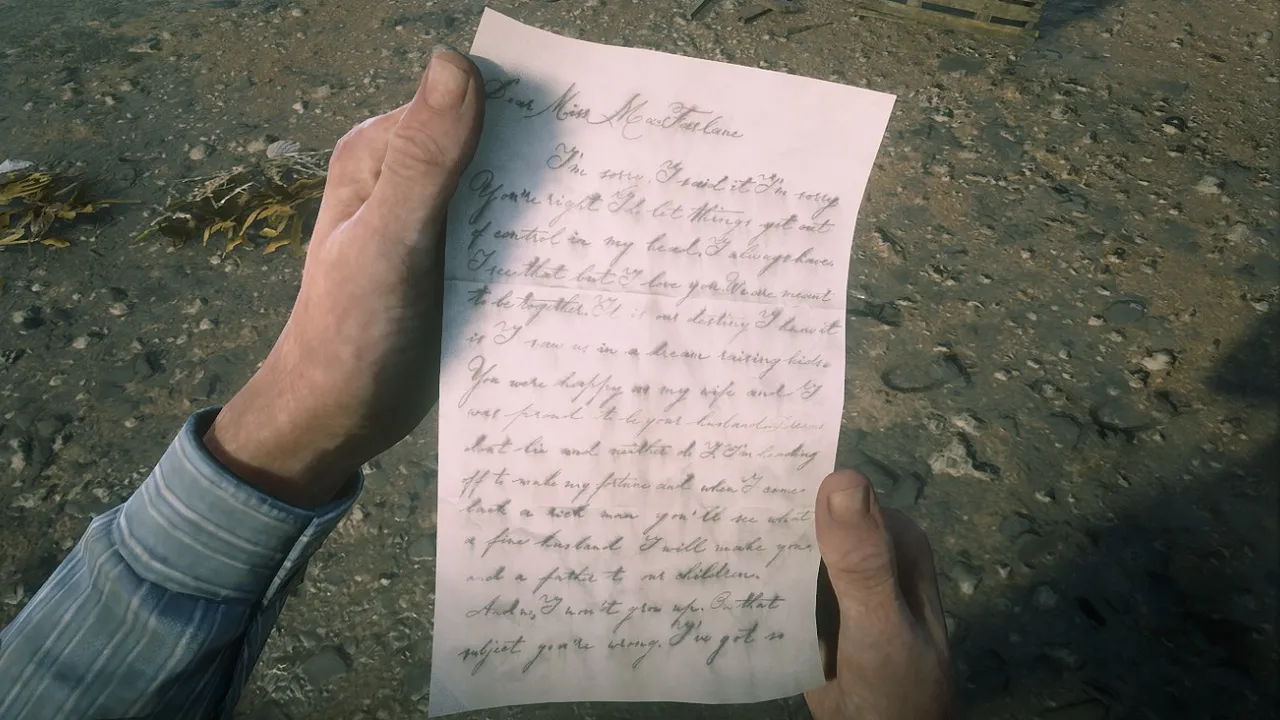 Dear Miss MacFarlane
I'm sorry. I said it I'm sorry
You're right I do let things get out
of control in my head, I always have.
I see that but I love you. We are meant
to be together. It is our destiny I know it
is I saw us in a dream raising kids.
You were happy as my wife and I
was proud to be your husband. Dreams
dont lie and neither do I. I'm heading
off to make my fortune and when I come
back a rich man you'll see what
a fine husband I will make you
and a father to our children.
And no, I won't grow up. On that
subject you're wrong. I've got so